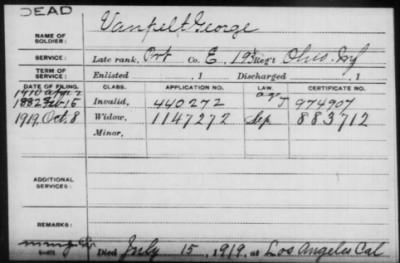 DEAD
NAME OF SOLDIER: Vanpelt George
SERVICE: Late rank, Co. E, 19 Reg't Ohio Inf
TERM OF SERVICE: Enlisted , 1 Discharged , 1
DATE OF FILING. CLASS. APPLICATION NO. LAW. CERTIFICATE NO.
1882 Feb 15 Invalid, 440272 974907
1919 Oct. 8 Widow, 1147272 Sep. 883712
Minor,
ADDITIONAL SERVICES:
REMARKS:
Died July 15, 1919, at Los Angeles Cal